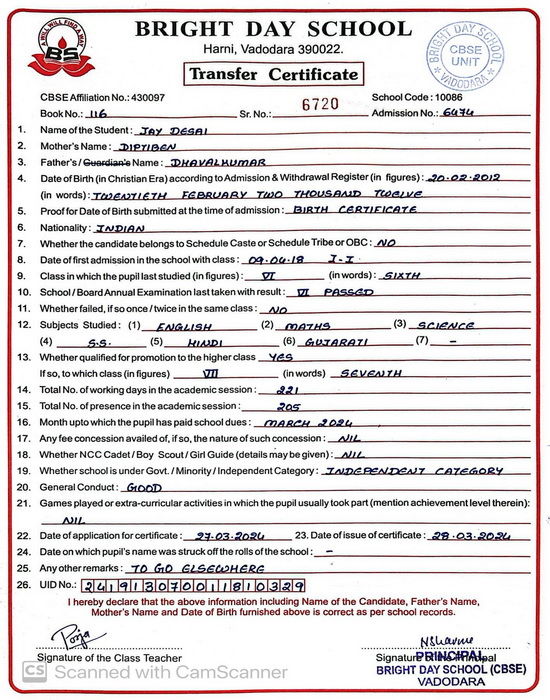 A WILL WILL FIND A WAY
BS
BRIGHT DAY SCHOOL
Harni, Vadodara 390022.
Transfer Certificate
BRIGHT DAY SCHOOL
CBSE
UNIT
VADODARA
CBSE Affiliation No.: 430097 School Code : 10086
Book No.: 116 Sr. No.: 6720 Admission No.: 6474
1. Name of the Student : JAY DESAI
2. Mother's Name : DIPTIBEN
3. Father's / Guardian's Name : DHAVALKUMAR
4. Date of Birth (in Christian Era) according to Admission & Withdrawal Register (in figures) : 20-02-2012
(in words) : TWENTIETH FEBRUARY TWO THOUSAND TWELVE
5. Proof for Date of Birth submitted at the time of admission : BIRTH CERTIFICATE
6. Nationality : INDIAN
7. Whether the candidate belongs to Schedule Caste or Schedule Tribe or OBC : NO
8. Date of first admission in the school with class : 09-04-18 I-I
9. Class in which the pupil last studied (in figures) : VI (in words) : SIXTH
10. School / Board Annual Examination last taken with result : VI PASSED
11. Whether failed, if so once / twice in the same class : NO
12. Subjects Studied : (1) ENGLISH (2) MATHS (3) SCIENCE
(4) S.S. (5) HINDI (6) GUJARATI (7) -
13. Whether qualified for promotion to the higher class YES
If so, to which class (in figures) VII (in words) SEVENTH
14. Total No. of working days in the academic session : 221
15. Total No. of presence in the academic session : 205
16. Month upto which the pupil has paid school dues : MARCH 2024
17. Any fee concession availed of, if so, the nature of such concession : NIL
18. Whether NCC Cadet / Boy Scout / Girl Guide (details may be given) : NIL
19. Whether school is under Govt. / Minority / Independent Category : INDEPENDENT CATEGORY
20. General Conduct : GOOD
21. Games played or extra-curricular activities in which the pupil usually took part (mention achievement level therein) :
NIL
22. Date of application for certificate : 27-03-2024 23. Date of issue of certificate : 28-03-2024
24. Date on which pupil's name was struck off the rolls of the school : -
25. Any other remarks : TO GO ELSEWHERE
26. UID No.: 241913070011810329
I hereby declare that the above information including Name of the Candidate, Father's Name,
Mother's Name and Date of Birth furnished above is correct as per school records.
Pooja
Signature of the Class Teacher Signature of the Principal
PRINCIPAL
BRIGHT DAY SCHOOL (CBSE)
VADODARA
CS Scanned with CamScanner